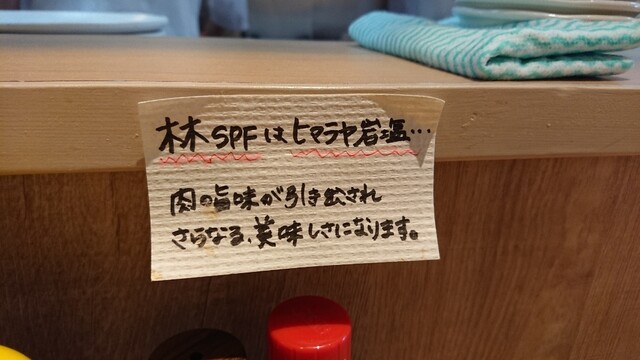 林SPFはヒマラヤ岩塩…
肉の旨味が引き出され
さらなる、美味しさになります。